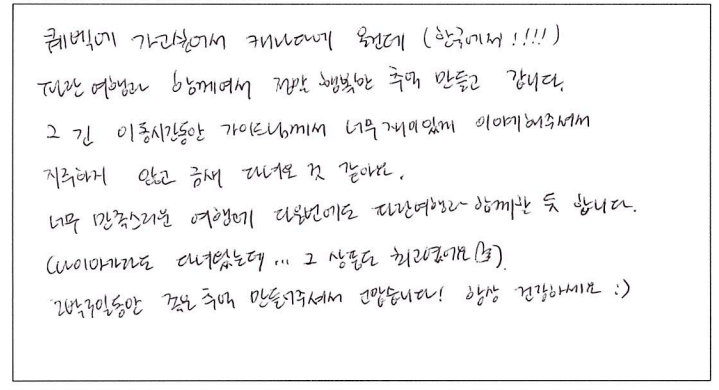 퀘벡에 가고싶어서 캐나다에 왔는데 (한국에서!!!!)
파란여행과 함께여서 정말 행복한 추억 만들고 갑니다.
그 긴 이동시간동안 가이드님께서 너무 재미있게 이야기해주셔서
지루하지 않고 금새 다녀온 것 같아요.
너무 만족스러운 여행에 다음번에도 파란여행과 함께할 듯 합니다.
(나이아가라도 다녀왔는데... 그 상품도 최고였어요)
2박3일동안 좋은 추억 만들어주셔서 고맙습니다! 항상 건강하세요 :)